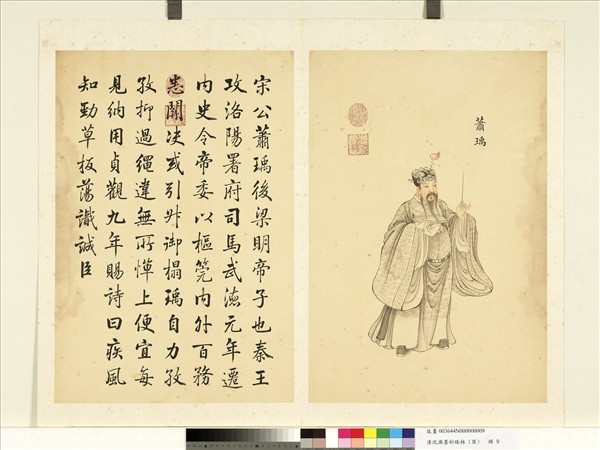 蕭瑀
宋公蕭瑀後梁明帝子也秦王
攻洛陽署府司馬武德元年遷
内史令帝委以樞筦内外百務
悉關决或引升御榻瑀自力孜
孜抑過繩違無所憚上便宜每
見納用貞觀九年賜詩曰疾風
知勁草板蕩識誠臣
故畫 003644N000000009
清沈源墨妙珠林(酉) 冊 9